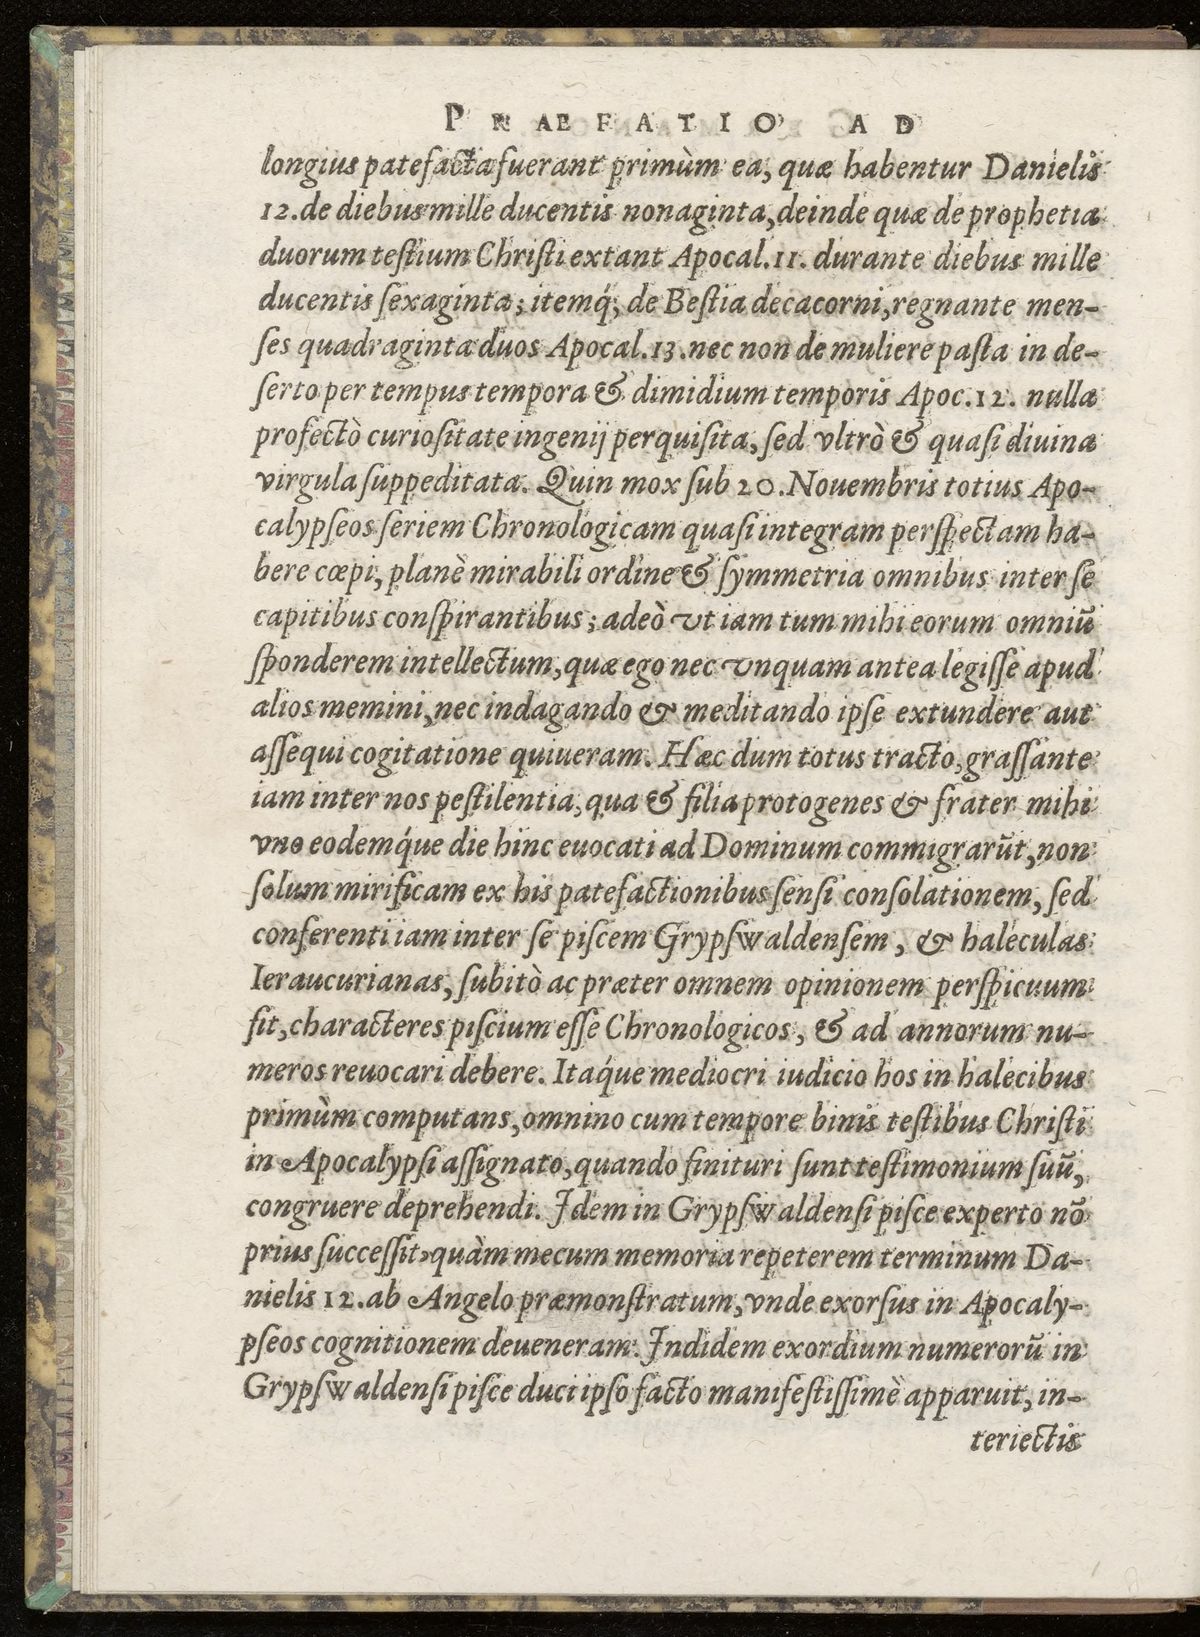 PRAEFATIO AD
longius patefacta fuerant primùm ea, quæ habentur Danielis
12. de diebus mille ducentis nonaginta, deinde quæ de prophetia
duorum teſtium Chriſti extant Apocal. 11. durante diebus mille
ducentis ſexaginta; itemq́; de Beſtia decacorni, regnante men-
ſes quadraginta duos Apocal. 13. nec non de muliere paſta in de-
ſerto per tempus tempora & dimidium temporis Apoc. 12. nulla
profectò curioſitate ingenij perquiſita, ſed vltrò & quaſi diuina
virgula ſuppeditata. Quin mox ſub 20. Nouembris totius Apo-
calypſeos ſeriem Chronologicam quaſi integram perſpectam ha-
bere cœpi, planè mirabili ordine & ſymmetria omnibus inter ſe
capitibus conſpirantibus; adeò vt iam tum mihi eorum omniū
ſponderem intellectum, quæ ego nec vnquam antea legiſſe apud
alios memini, nec indagando & meditando ipſe extundere aut
aſſequi cogitatione quiueram. Hæc dum totus tracto, graſſante
iam inter nos peſtilentia, qua & filia protogenes & frater mihi
vno eodemq́ue die hinc euocati ad Dominum commigrarūt, non
ſolum mirificam ex his patefactionibus ſenſi conſolationem, ſed
conferenti iam inter ſe piſcem Grypſwaldenſem, & haleculas
Ieraucurianas, ſubitò ac præter omnem opinionem perſpicuum
fit, characteres piſcium eſſe Chronologicos, & ad annorum nu-
meros reuocari debere. Itaq́ue mediocri iudicio hos in halecibus
primùm computans, omnino cum tempore binis teſtibus Chriſti
in Apocalypſi aſſignato, quando finituri ſunt teſtimonium ſuū,
congruere deprehendi. Idem in Grypſwaldenſi piſce experto nō
prius ſucceſſit, quàm mecum memoria repeterem terminum Da-
nielis 12. ab Angelo præmonſtratum, vnde exorſus in Apocaly-
pſeos cognitionem deueneram. Indidem exordium numerorū in
Grypſwaldenſi piſce duci ipſo facto manifeſtiſſimè apparuit, in-
teriectis